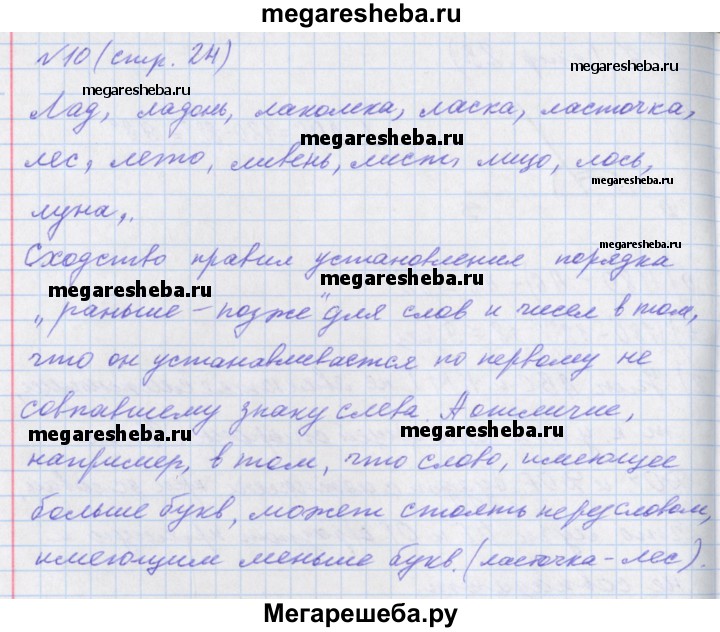 megaresheba.ru
№10 (стр. 24)
megaresheba.ru
megaresheba.ru
Лад, ладонь, лакомка, ласка, ласточка,
megaresheba.ru
лес, лето, ливень, лист, лицо, лось,
megaresheba.ru
луна,.
megaresheba.ru
Сходство правил установления порядка
megaresheba.ru
megaresheba.ru
„раньше – позже" для слов и чисел в том,
что он устанавливается по первому не
совпавшему знаку слева. А отличие,
megaresheba.ru
megaresheba.ru
например, в том, что слово, имеющее
больше букв, может стоять перед словом,
имеющим меньше букв. (ласточка – лес).
megaresheba.ru
Мегарешеба.ру